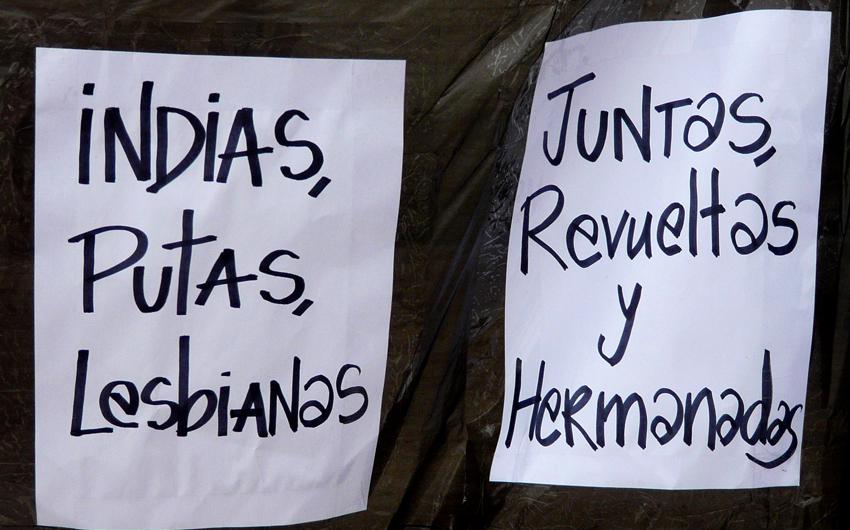 INDIAS,
PUTAS,
LesbiANas
JUNTas,
Revueltas
y
Hermanadas